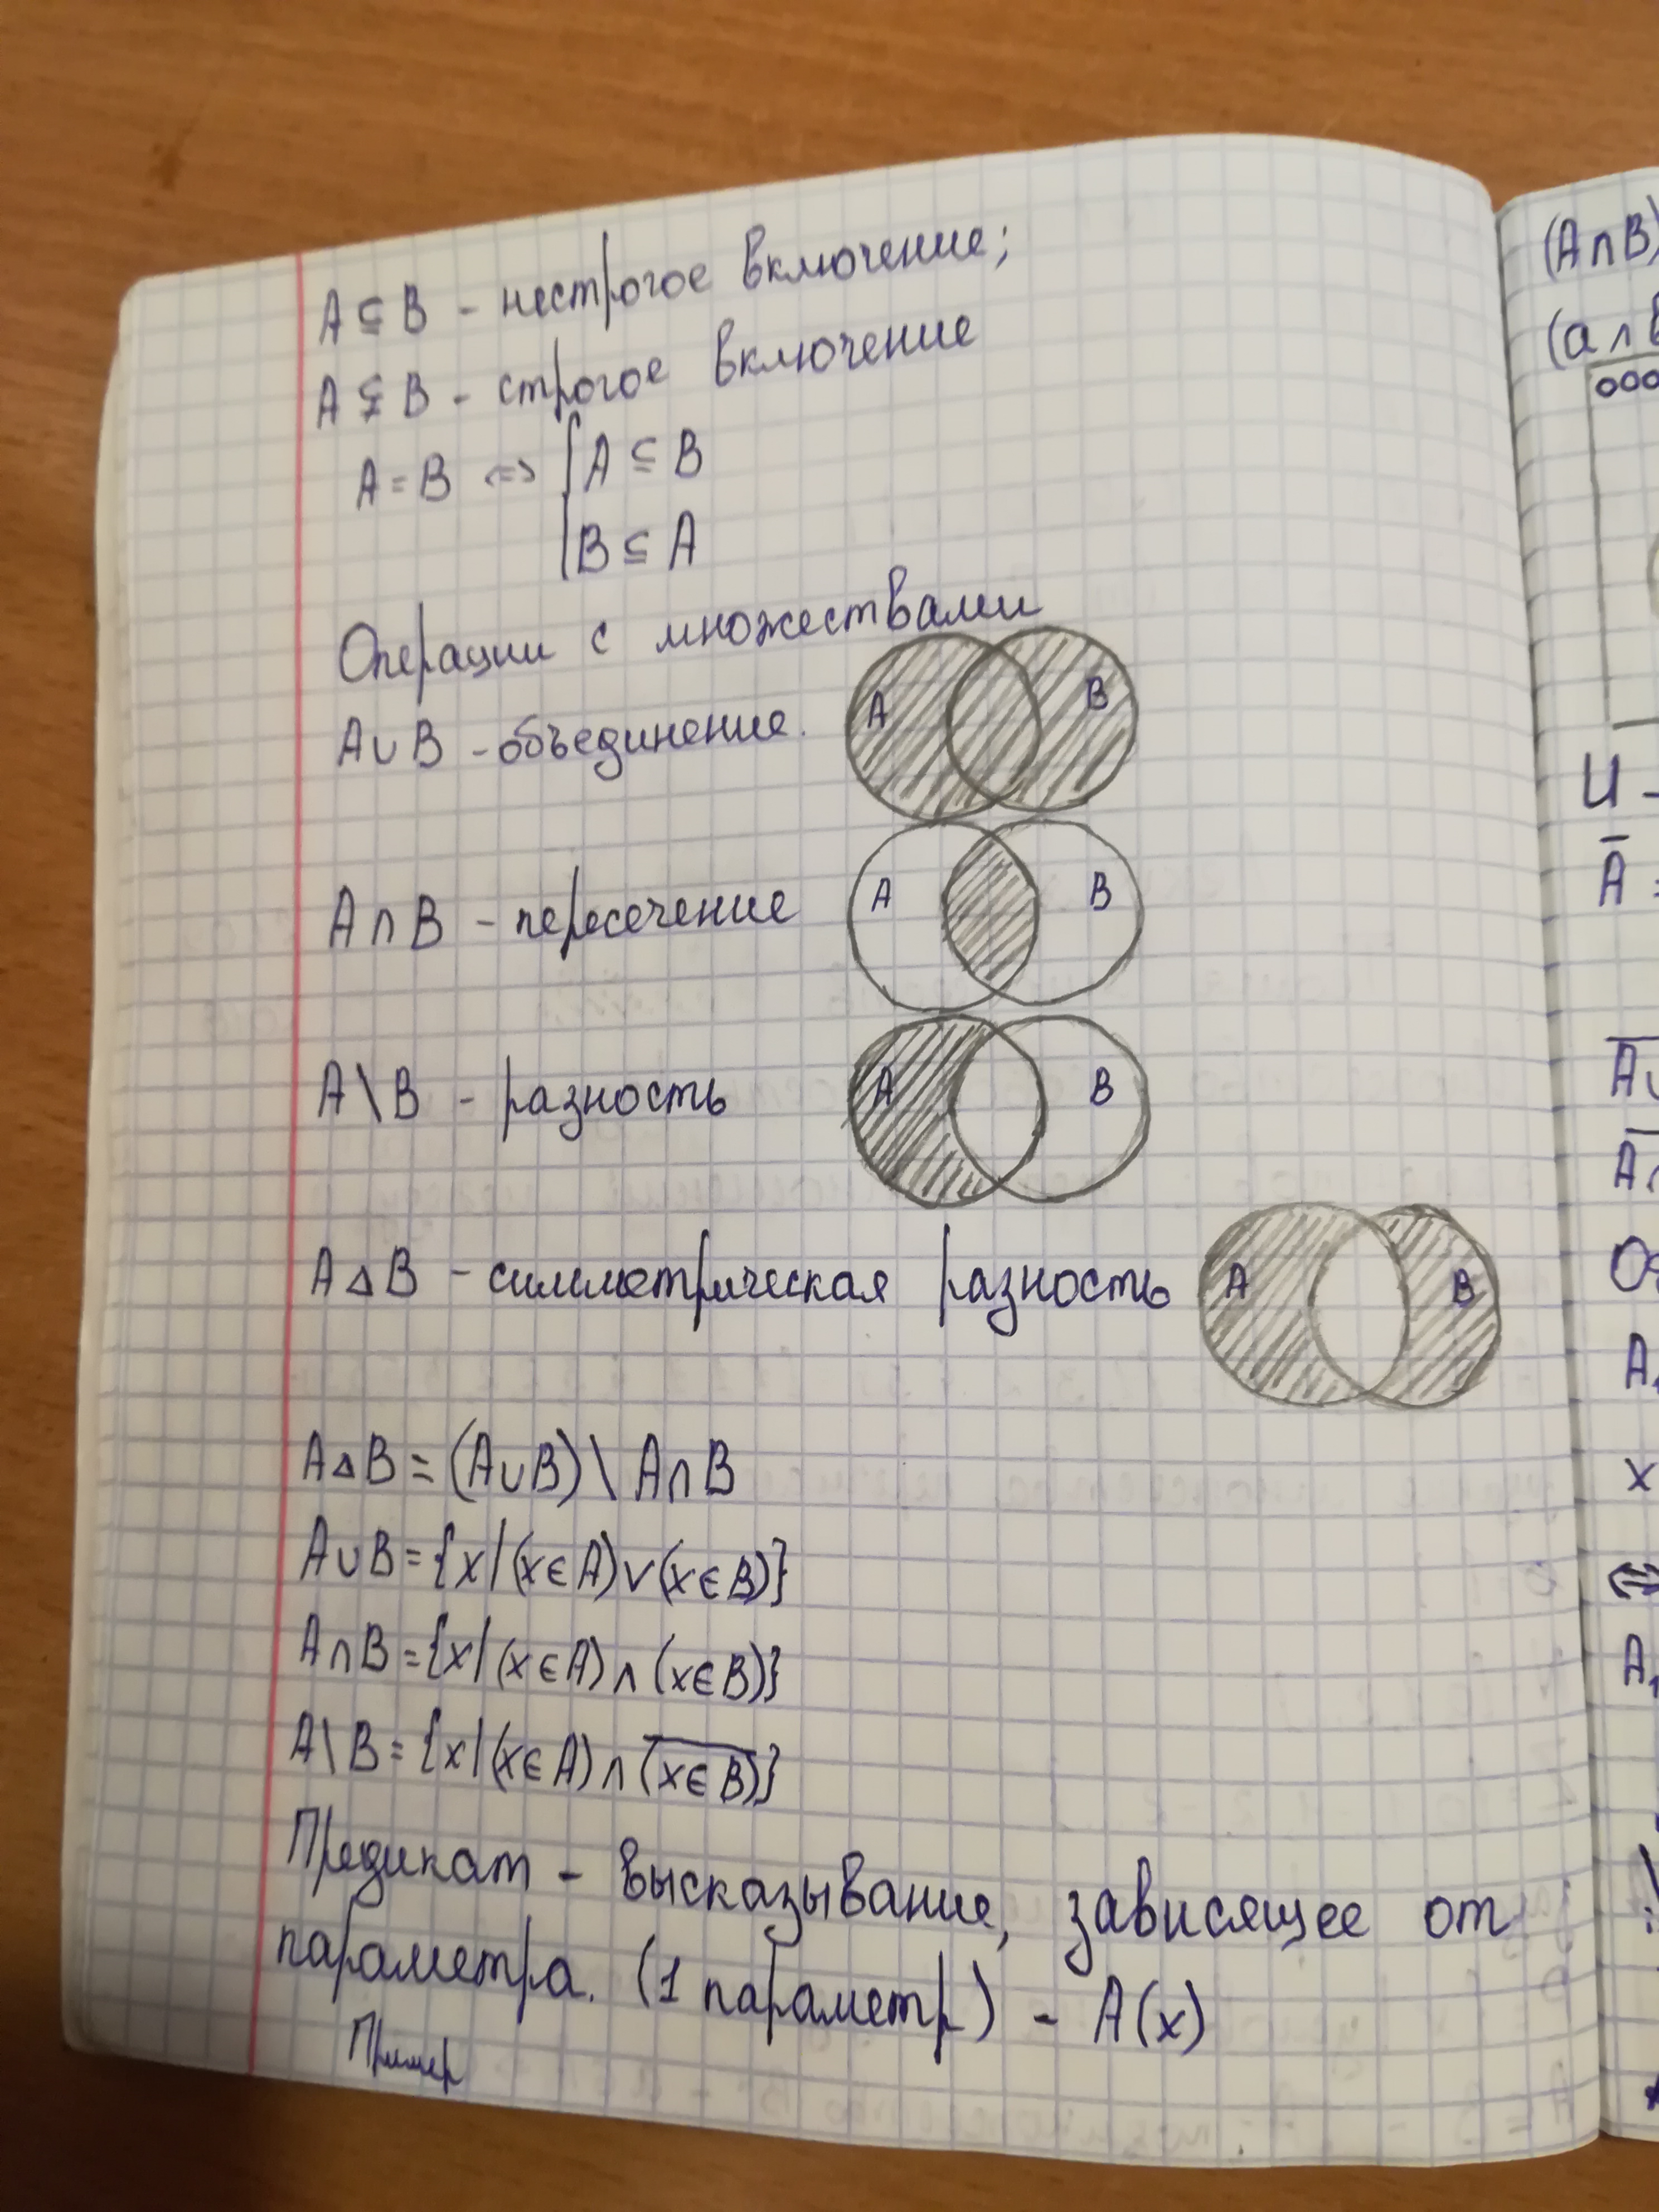 A ⊆ B - нестрогое включение;
A ⊊ B - строгое включение
A = B ⇔ { A ⊆ B
B ⊆ A
Операции с множествами
A∪B - объединение.
A B
A∩B - пересечение
A B
A\B - разность
A B
A△B - симметрическая разность
A B
A△B = (A∪B) \ A∩B
A∪B = {x|(x∈A)∨(x∈B)}
A∩B = {x|(x∈A)∧(x∈B)}
A\B = {x|(x∈A)∧(x∈B)̅}
Предикат - высказывание, зависящее от
параметра. (1 параметр) - A(x)
Пример
(A∩B)
(a∧
U -
A̅ =
x
⇔